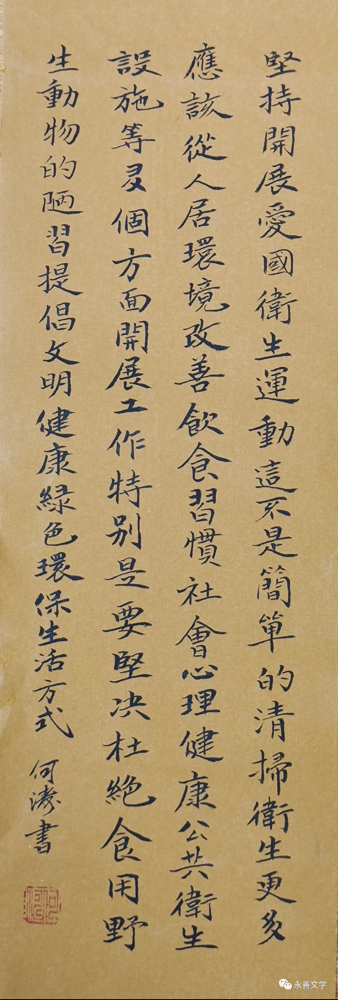 堅持開展愛國衛生運動這不是簡單的清掃衛生更多
應該從人居環境改善飲食習慣社會心理健康公共衛生
設施等多個方面開展工作特别是要堅决杜絶食用野
生動物的陋習提倡文明健康緑色環保生活方式
何濤書
永善文学